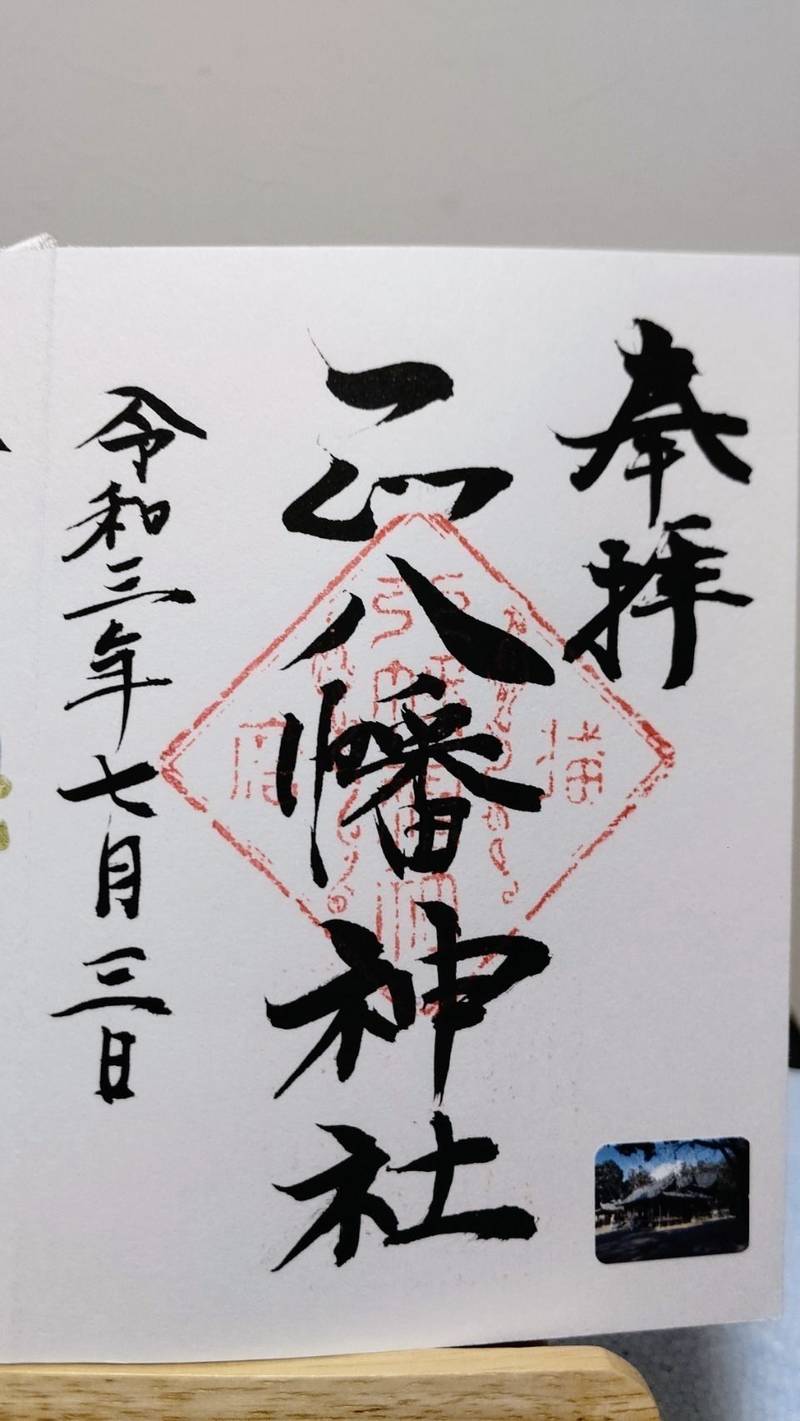 奉拝
正八幡神社
令和三年七月三日